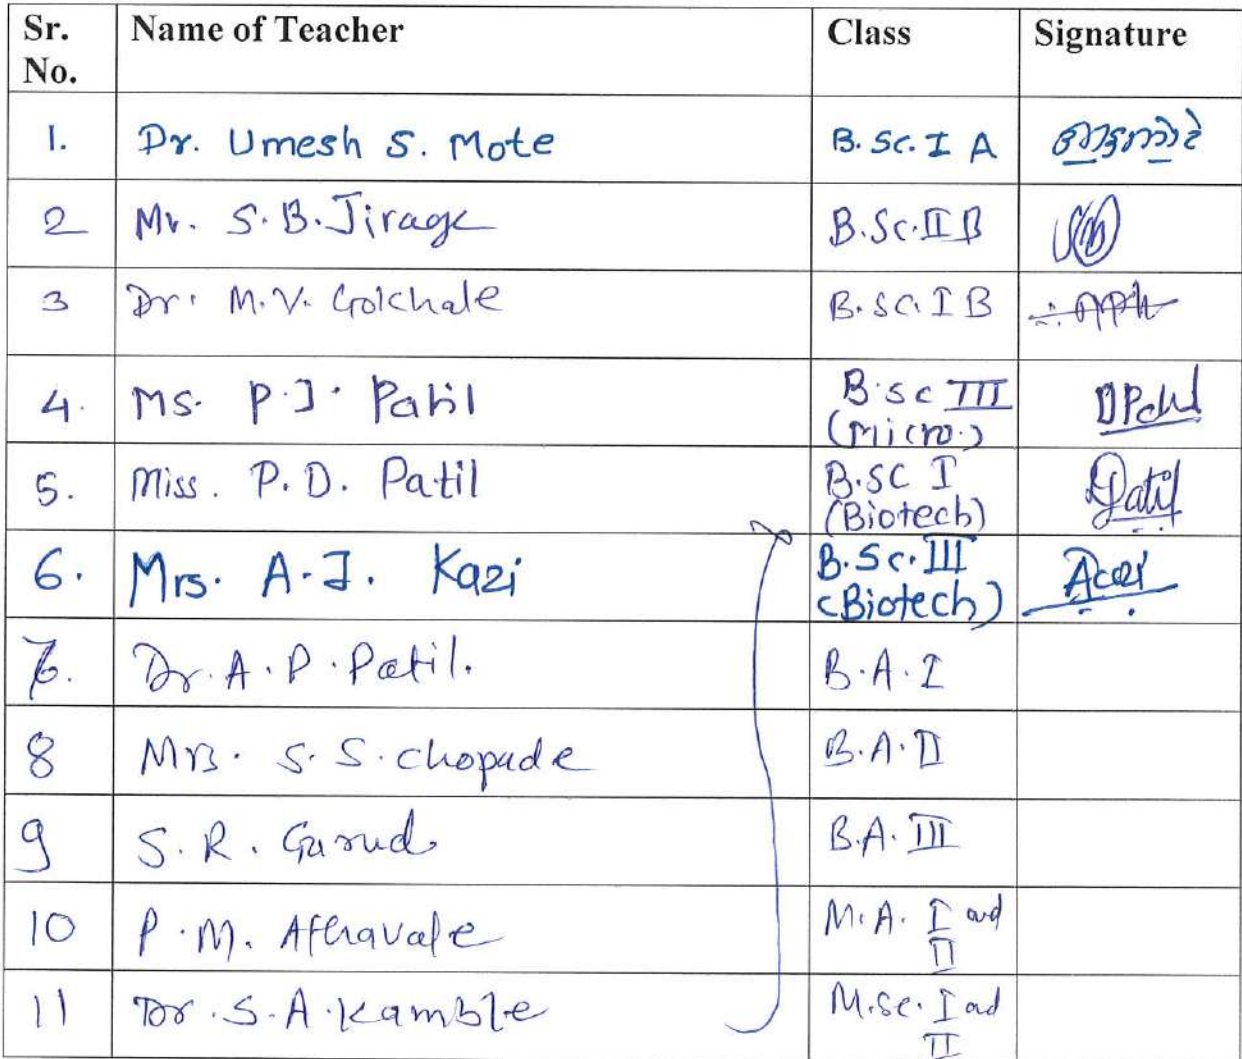 Sr. No. Name of Teacher Class Signature
1. Dr. Umesh S. Mote B.Sc. I A
2 Mr. S.B. Jirage B.Sc. II B
3 Dr. M.V. Gokhale B.Sc. I B
4. Ms. P.J. Patil B.sc III (Micro.)
5. Miss. P.D. Patil B.SC I (Biotech) Patil
6. Mrs. A.J. Kazi B.Sc. III (Biotech)
7. Dr. A.P. Patil. B.A. I
8 Mrs. S.S. chopade B.A. II
9 S.R. Garud B.A. III
10 P.M. Athavale M.A. I and II
11 Dr. S.A. Kamble M.Sc. I and II